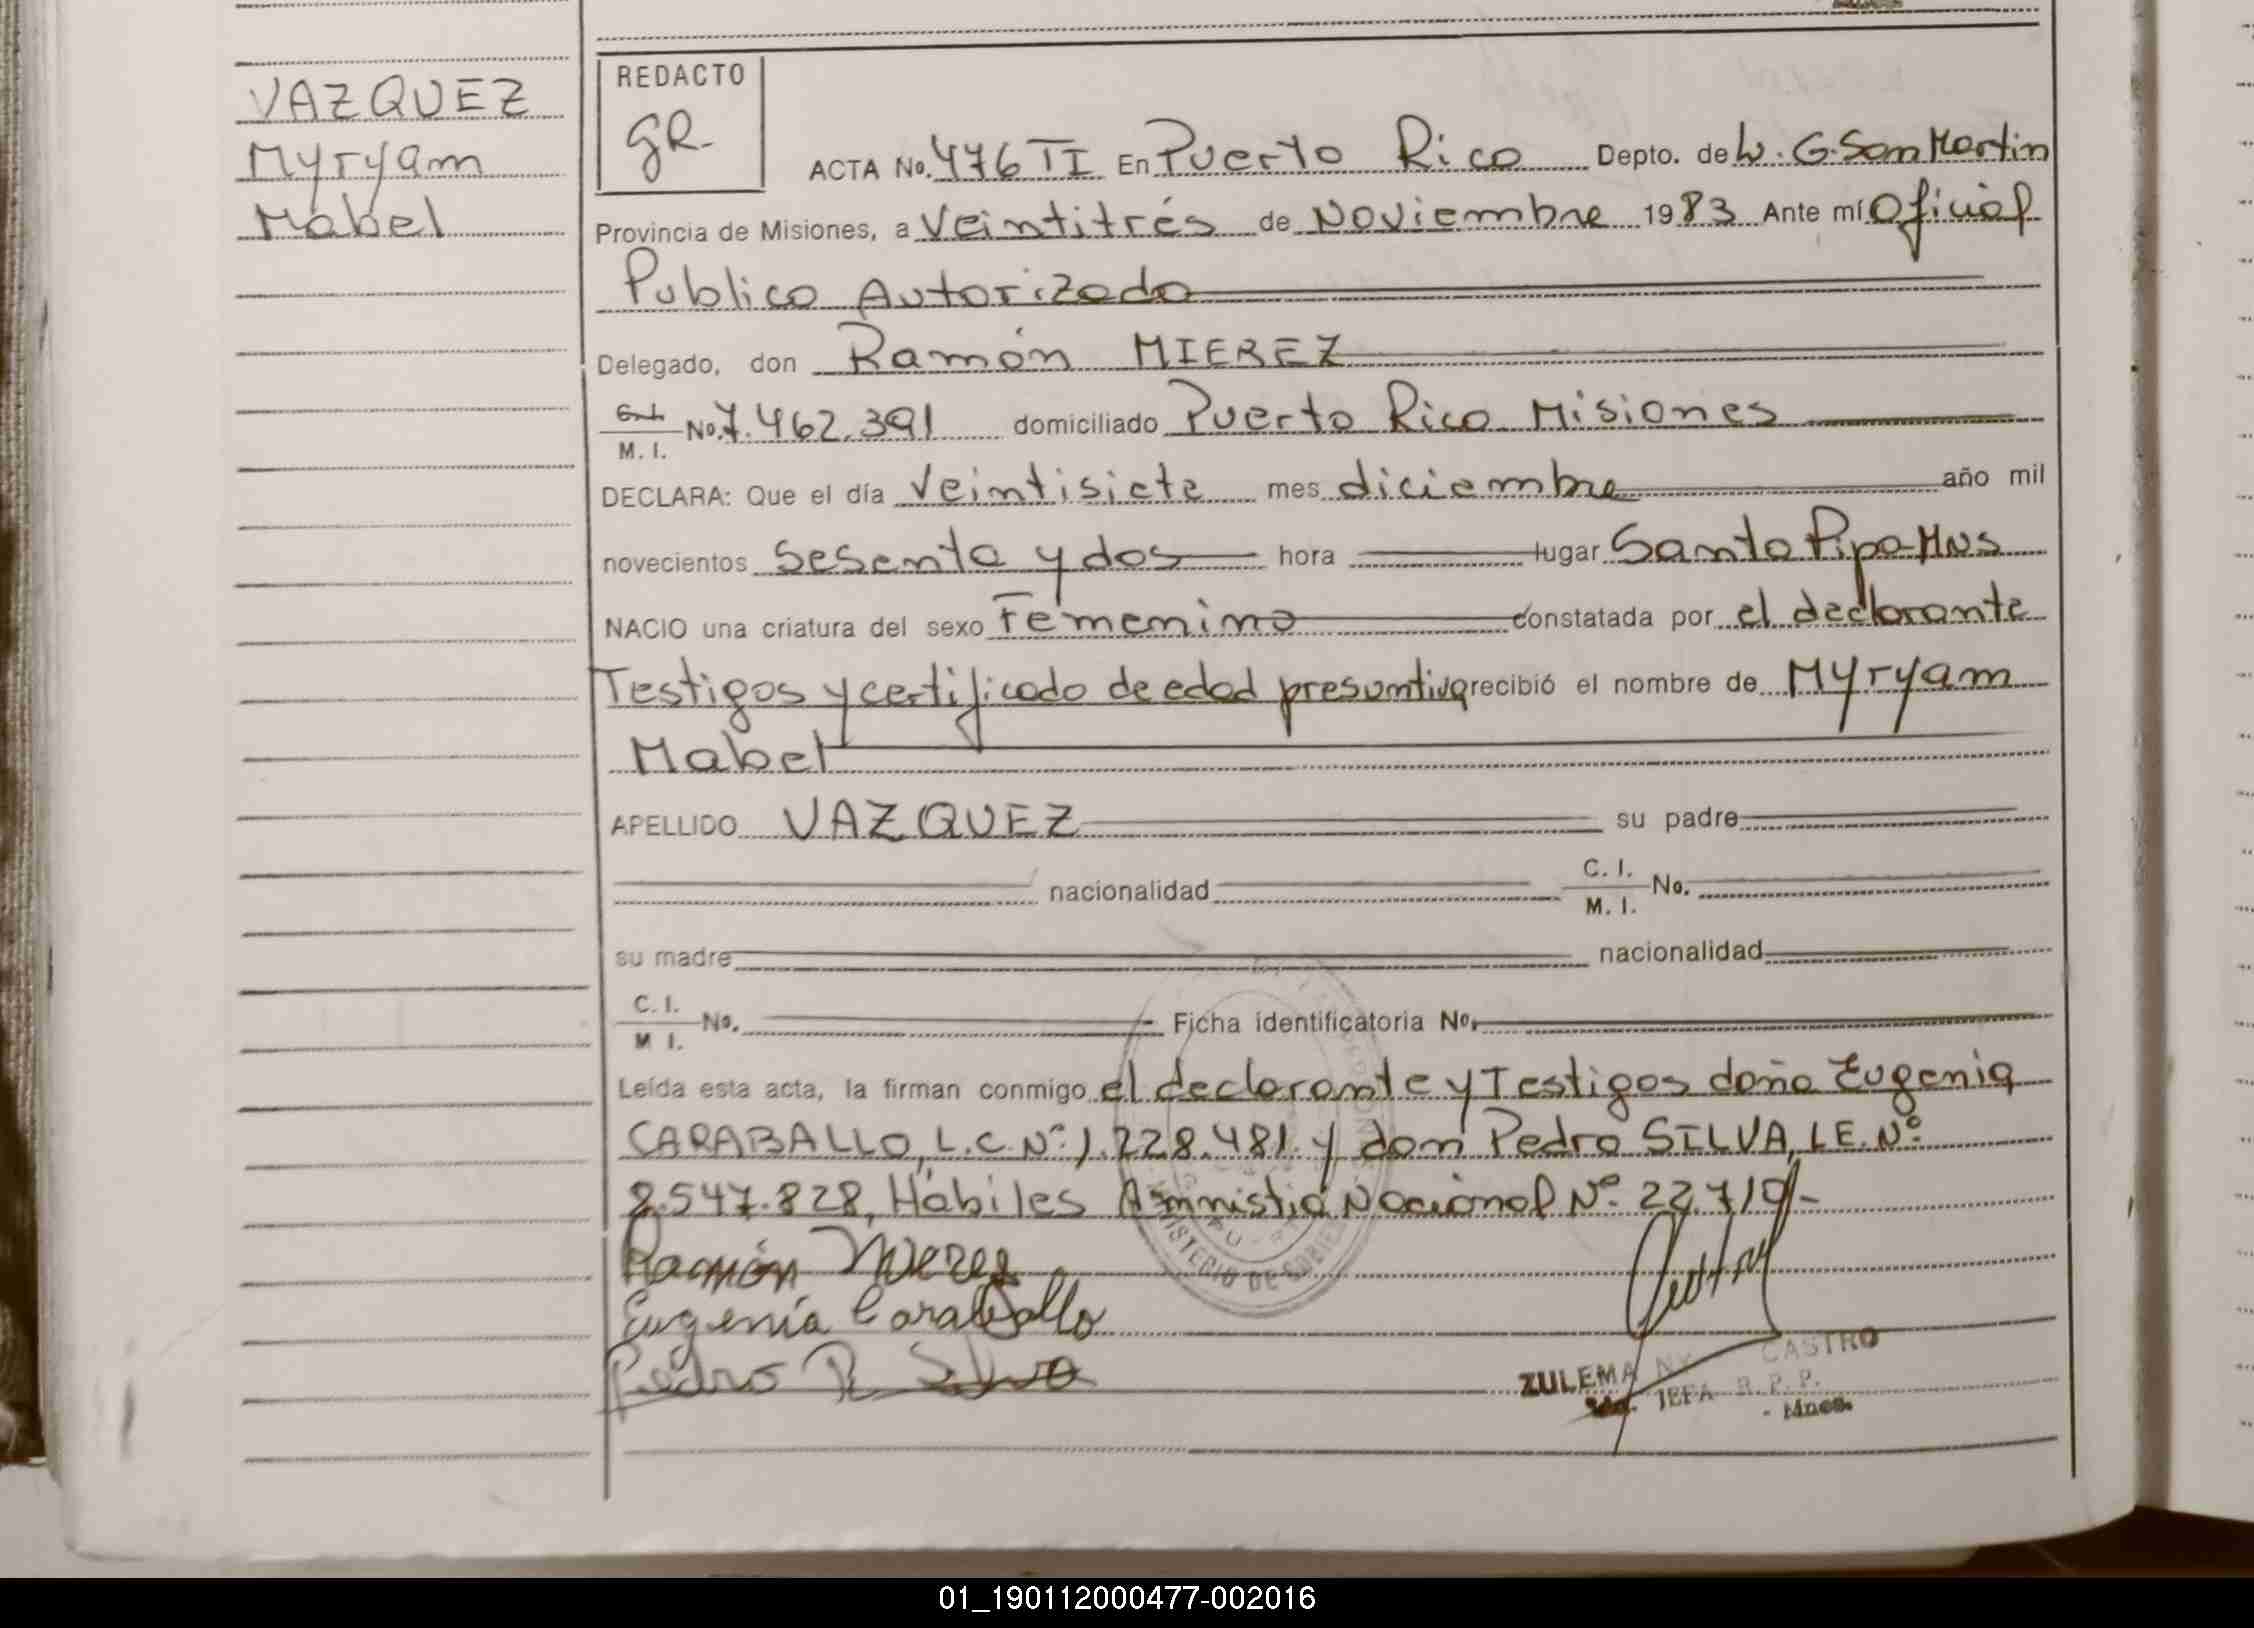 VAZQUEZ
Myryam
Mabel
REDACTO
GR-
ACTA No. 476 TI En Puerto Rico Depto. de L. G. San Martin
Provincia de Misiones, a Veintitrés de Noviembre 1983 Ante mí Oficial
Publico Autorizado
Delegado, don Ramón MIEREZ
M. I. No. 7.462.391 domiciliado Puerto Rico Misiones
DECLARA: Que el día Veintisiete mes diciembre año mil
novecientos Sesenta y dos hora lugar Santo Pipo-Mns
NACIO una criatura del sexo Femenino constatada por el declarante
Testigos y certificado de edad presuntiva recibió el nombre de Myryam
Mabel
APELLIDO VAZQUEZ su padre
nacionalidad C. I. M. I. No.
su madre nacionalidad
C. I. M I. No. Ficha identificatoria No.
Leída esta acta, la firman conmigo el declarante y Testigos doña Eugenia
CARABALLO, L.C. Nº 1.228.481 y don Pedro SILVA, L.E. Nº
8.547.828, Hábiles Amnistia Nacional Nº 22.710/-
Ramón Mierez
Eugenia Caraballo
Pedro R Silva
MINISTERIO DE GOBIE
ZULEMA CASTRO
JEFA R. P. P.
- Mnes.
01_190112000477-002016